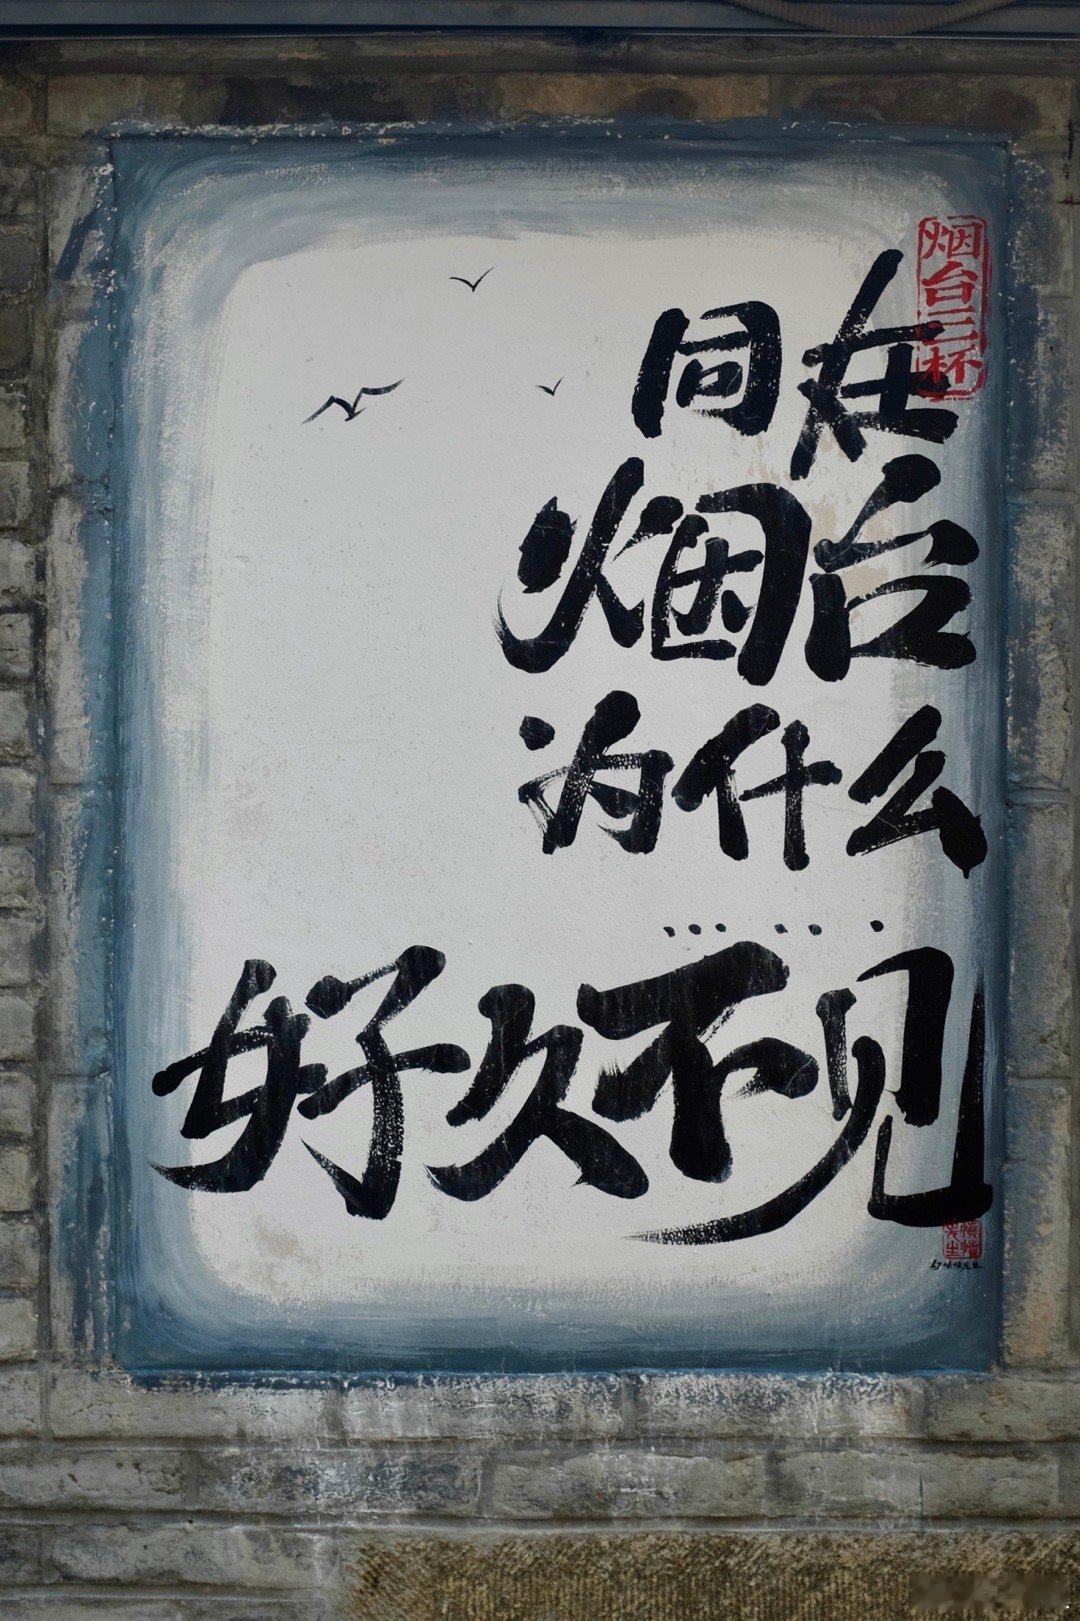 烟台三杯
同在
烟台
为什么
……
好久不见